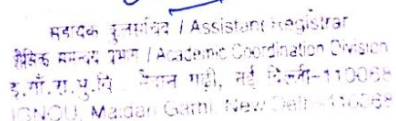 सहायक कुलसचिव / Assistant Registrar
शैक्षिक समन्वय प्रभाग / Academic Coordination Division
इ.गाँ.रा.मु.वि. मैदान गढ़ी, नई दिल्ली-110068
IGNOU, Maidan Garhi, New Delhi-110068